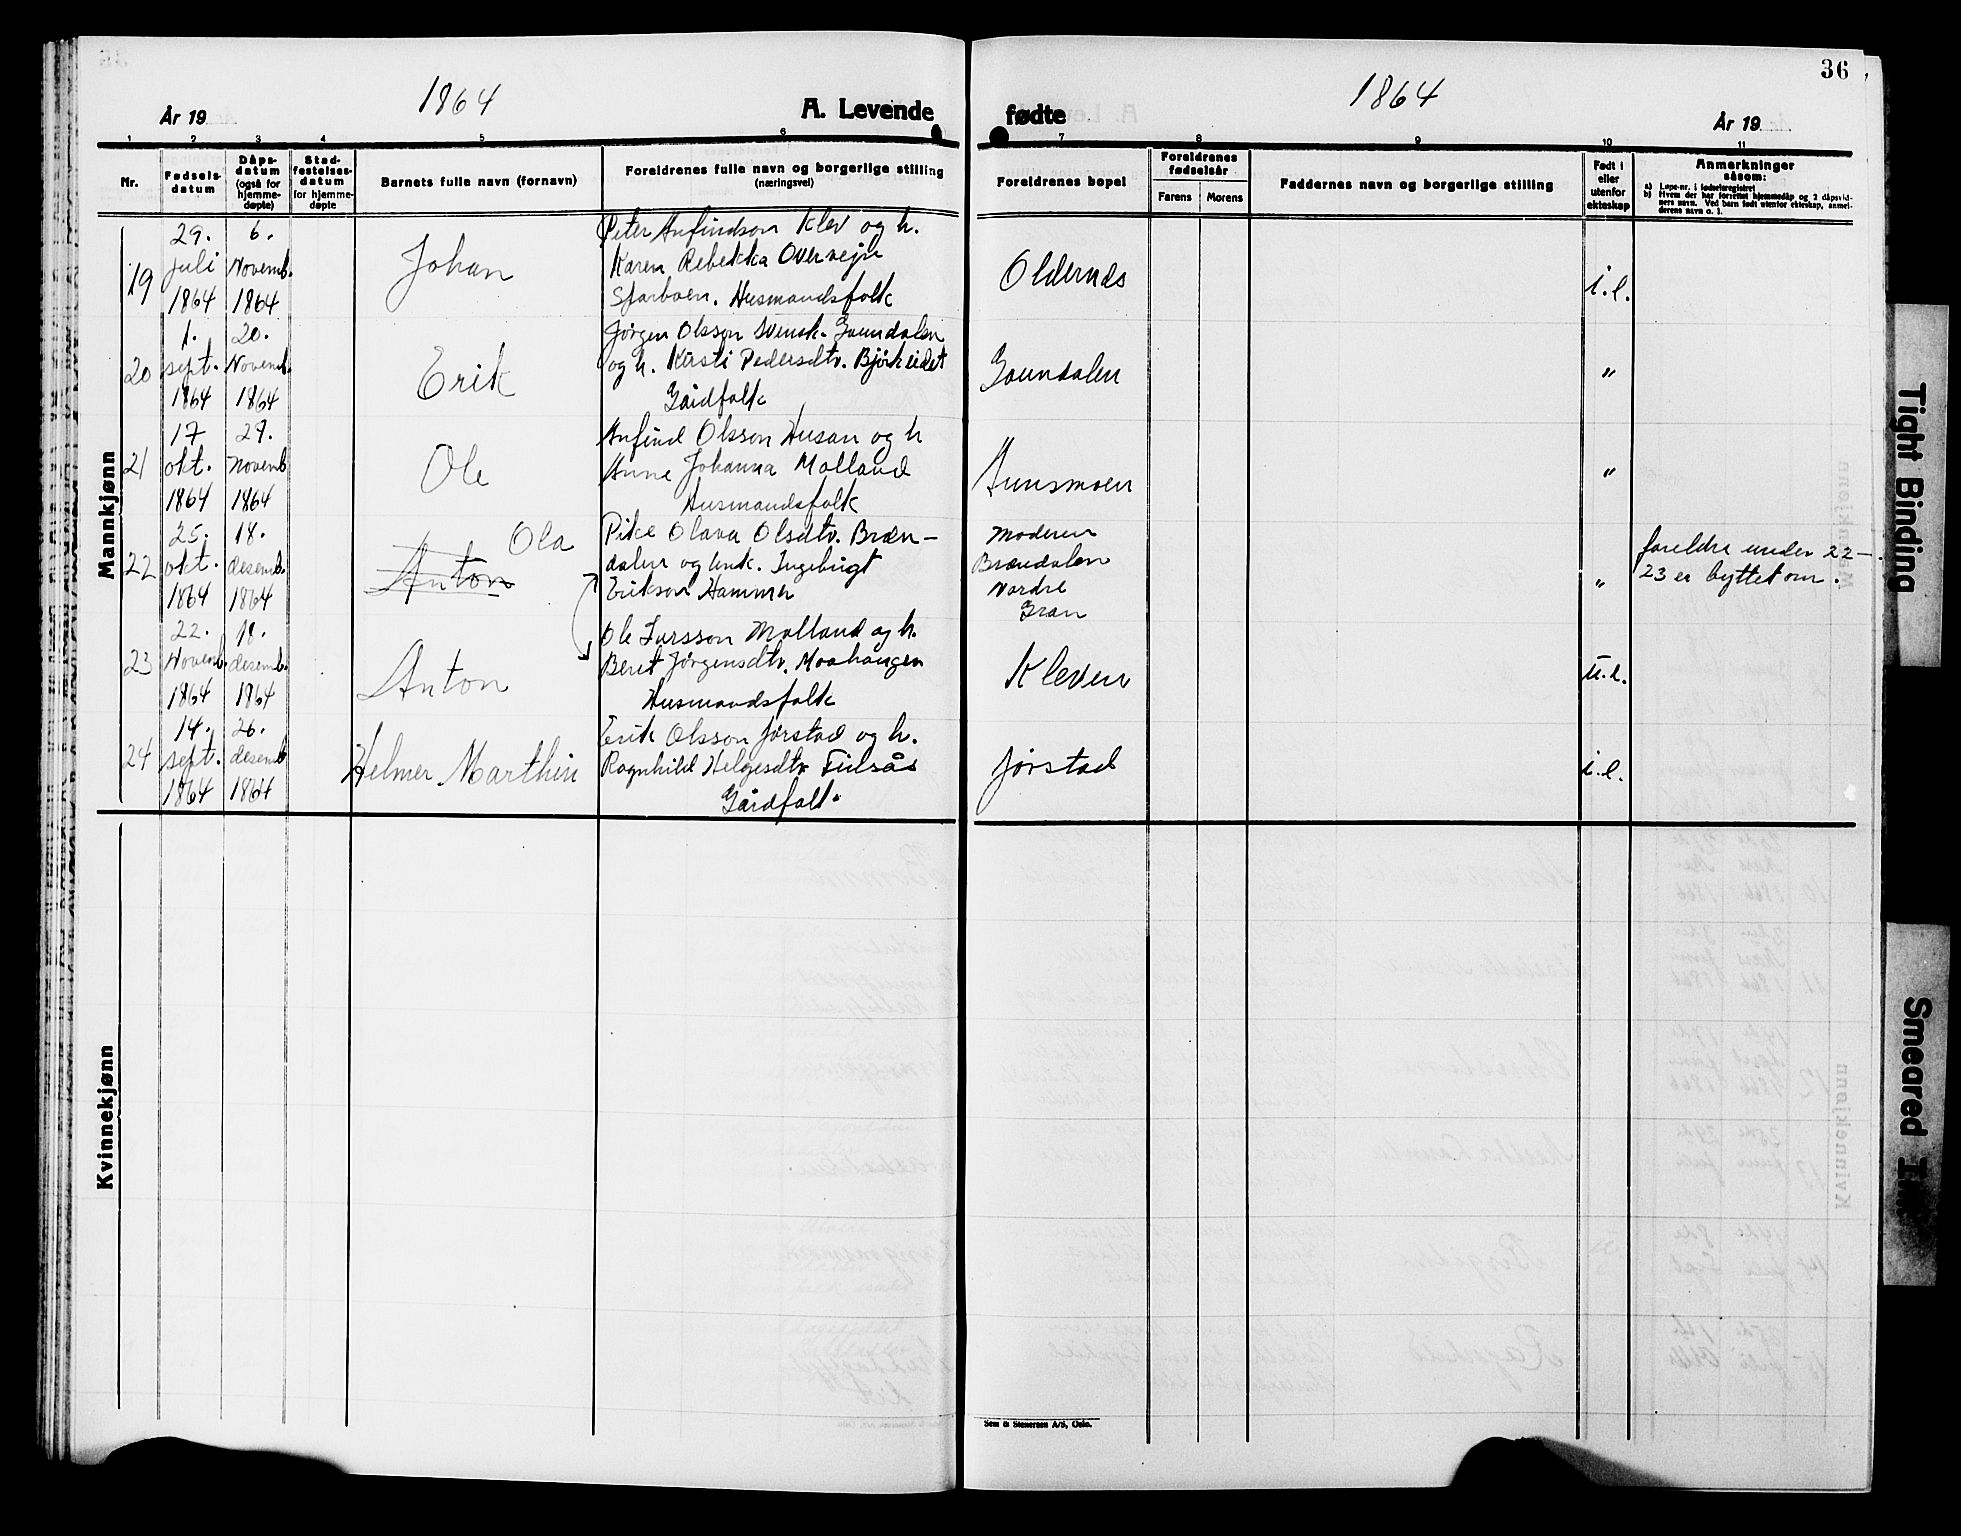 36
1864
1864
År 19
A. Levende
fødte
År 19
1 2 3 4 5 6 7 8 9 10 11
Nr.
Fødsels-
datum
Dåps-
datum
(også for
hjemme-
døpte)
Stad-
festelses-
datum
for hjemme-
døpte
Barnets fulle navn (fornavn)
Foreldrenes fulle navn og borgerlige stilling
(næringsvei)
Foreldrenes bopel
Foreldrenes
fødselsår
Farens Morens
Faddernes navn og borgerlige stilling
Født i
eller
utenfor
ekteskap
Anmerkninger
såsom:
a) Løpe-nr. i fødselsregistret
b) Hvem der har forrettet hjemmedåp og 2 dåpsvid-
ners navn. Ved barn født utenfor ekteskap, anmel-
derens navn o. l.
Mankjønn
19
29.
Juli
1864
6.
Novemb.
1864
Johan
Peter Anfindson Klev og h.
Karen Rebekka Overvejn
Sparboen. Husmandsfolk
Oldernes
i.e.
20
1.
sept.
1864
20.
Novemb.
1864
Erik
Jørgen Olsson Svensk. Gaundalen
og h. Kirsti Pedersdtr. Bjørkeidet
Gårdfolk
Gaundalen
"
21
17
okt.
1864
27.
Novemb
1864
Ole
Anfind Olsson Husan og h
Anne Johanna Molland
Husmandsfolk
Aunsmoen
"
22
25.
okt.
1864
18.
desemb.
1864
Ola
Anton
Pike Olava Olsdtr. Bræn-
dalen og enk. Ingebrigt
Erikson Hammer
Moderen
Brændalen
Nordre
Gran
"
foreldre under 22 —
23 er byttet om.
23
22.
Novemb.
1864
18.
desemb.
1864
Anton
Ole Larsson Molland og h.
Beret Jørgensdtr. Moahaugen
Husmandsfolk
Kleven
u.e.
24
14.
sept.
1864
26.
desemb
1864
Helmer Marthin
Erik Olsson Jørstad og h.
Ragnhild Helgesdtr
Gårdfolk
Jørstad
i.e.
Kvinnekjønn
Sem & Stenersen A/S, Oslo.
Tight Binding
Smeared